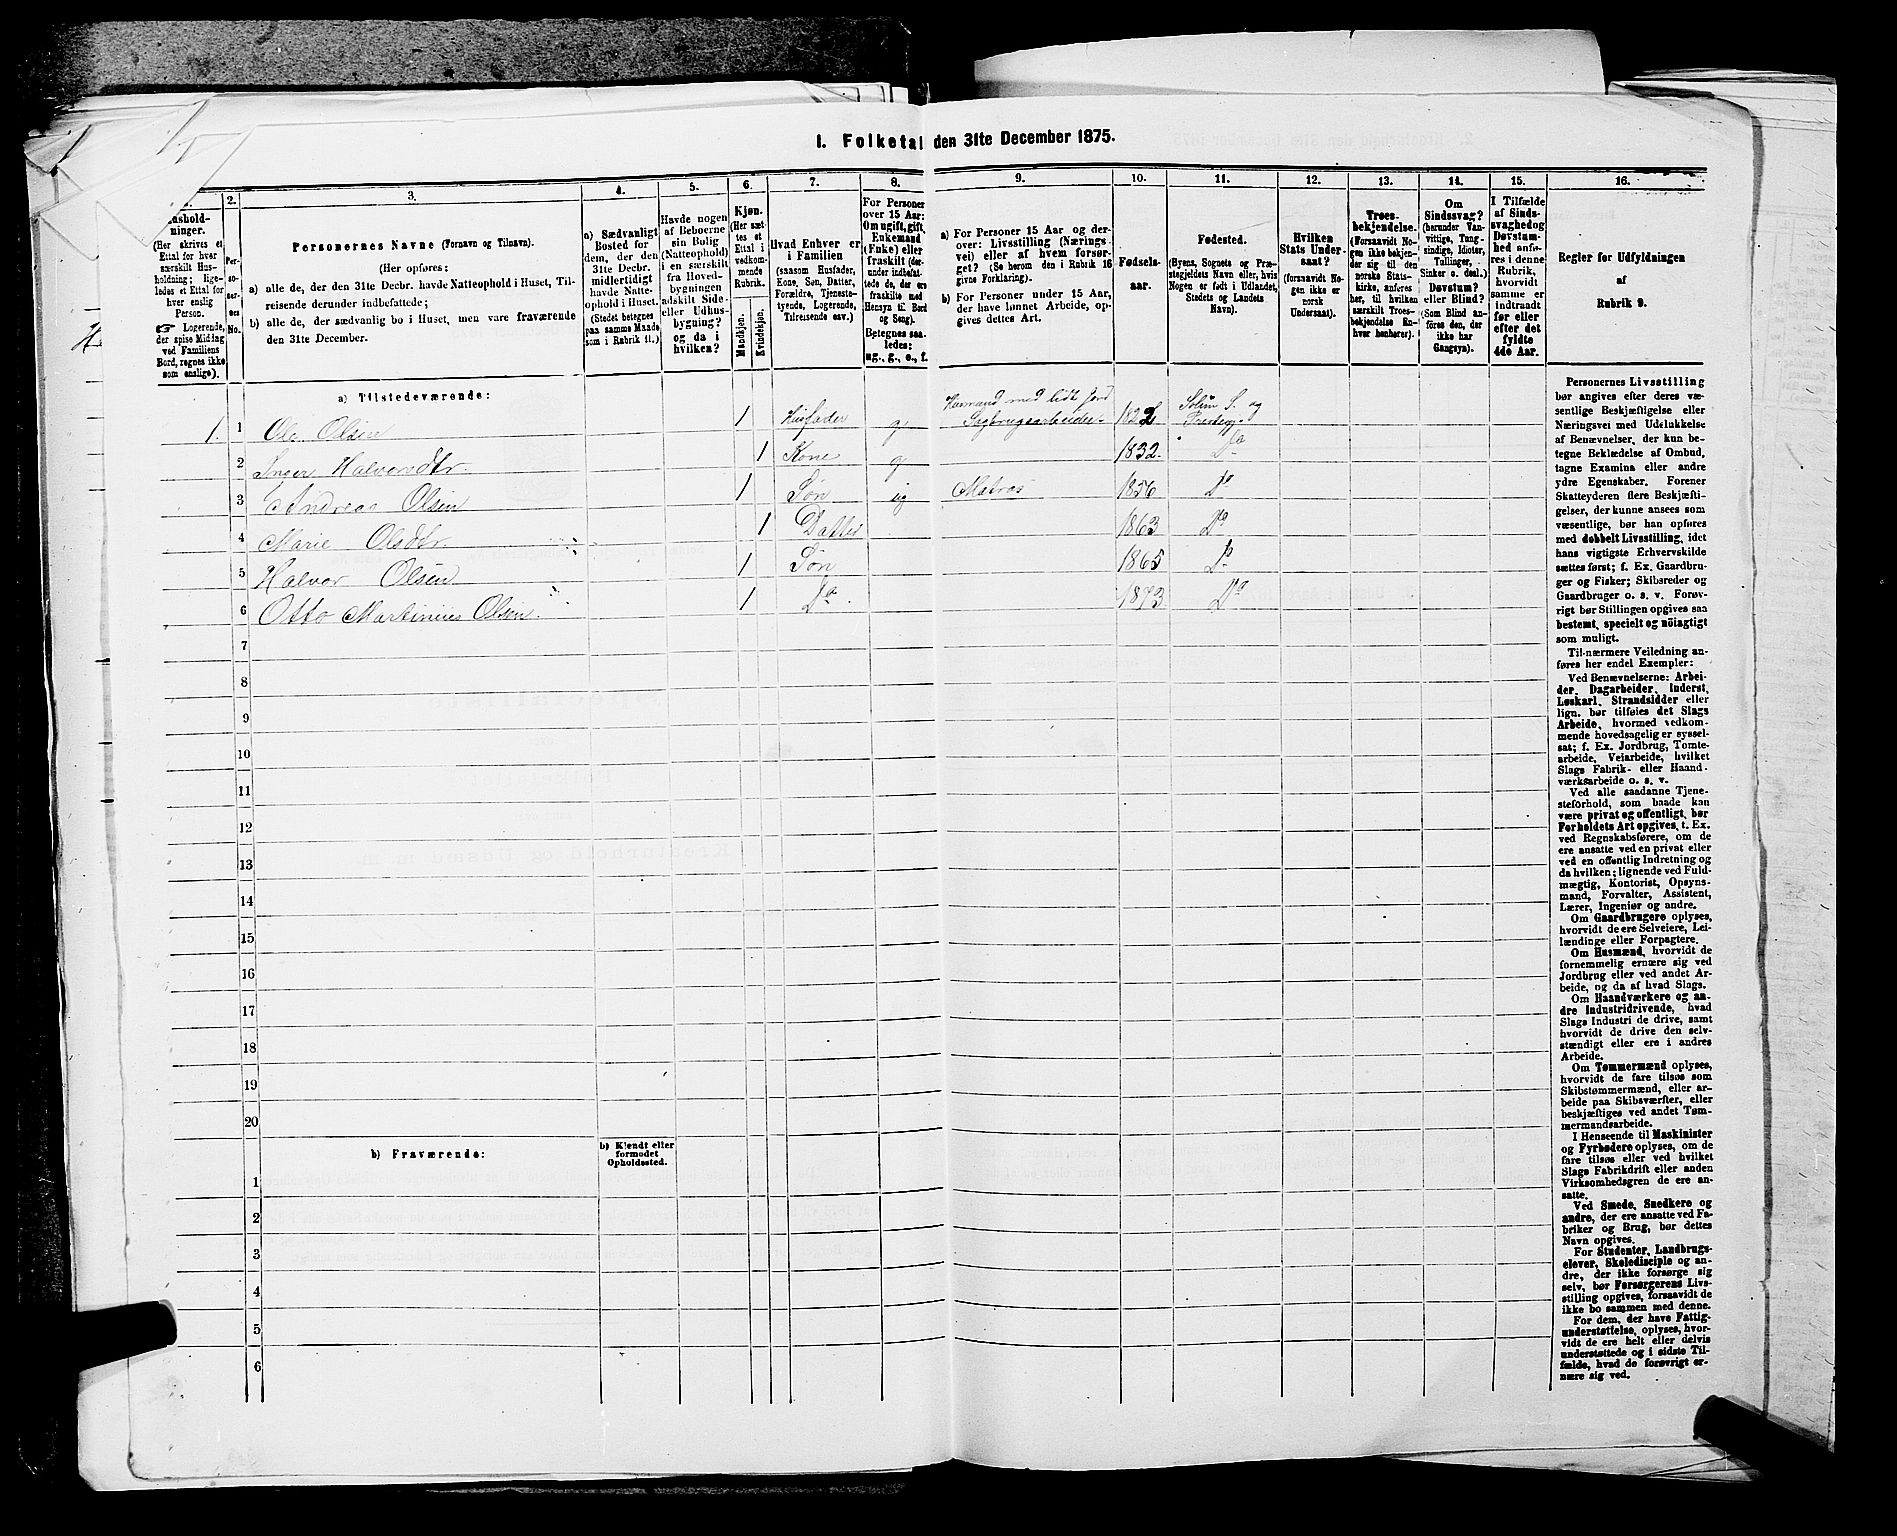 I. Folketal den 31te December 1875.
2.
3.
4.
5.
6.
7.
8.
9.
10.
11.
12.
13.
14.
15.
16.
ninger.
(Her skrives et
Ettal for hver
særskilt Hus-
holdning; lige-
ledes et Ettal for
hver enslig
Person.
☞ Logerende,
der spise Middag
ved Familiens
Bord, regnes ikke
som enslige).
Per-
so-
ner-
nes
No.
Personernes Navne (Fornavn og Tilnavn).
(Her opføres:
a) alle de, der den 31te Decbr. havde Natteophold i Huset, Til-
reisende derunder indbefattede;
b) alle de, der sædvanlig bo i Huset, men vare fraværende
den 31te December.
a) Sædvanligt
Bosted for
dem, der den
31te Decbr.
midlertidigt
havde Natte-
ophold i Huset.
(Stedet betegnes
paa samme Maade
som i Rubrik 11.)
Havde nogen
af Beboerne
sin Bolig
(Natteophold)
i en særskilt
fra Hoved-
bygningen
adskilt Side-
eller Udhus-
bygning?
og da i
hvilken?
Kjøn.
(Her sæt-
tes et
Ettal i
vedkom-
mende
Rubrik.
Mandkjøn.
Kvindekjøn.
Hvad Enhver er
i Familien
(saasom Husfader,
Kone, Søn, Datter,
Forældre, Tjeneste-
tyende, Logerende,
Tilreisende osv.)
For Personer
over 15 Aar:
Om ugift, gift,
Enkemand
(Enke) eller
fraskilt (der-
under indbefat-
tede de, der ere
fraskilte med
Hensyn til Bord
og Seng).
Betegnes saa-
ledes:
ug., g., e., f.
a) For Personer 15 Aar og der-
over: Livsstilling (Nærings-
vei) eller af hvem forsør-
get? (Se herom den i Rubrik 16
givne Forklaring).
b) For Personer under 15 Aar,
der have lønnet Arbeide, op-
gives dettes Art.
Fødsels-
aar.
Fødested.
(Byens, Sognets og Præ-
stegjeldets Navn eller, hvis
Nogen er født i Udlandet,
Stedets og Landets
Navn).
Hvilken
Stats Under-
saat?
(forsaavidt No-
gen ikke er
norsk
Undersaat).
Troes-
bekjendelse.
(Forsaavidt No-
gen ikke bekjen-
der sig til den
norske Stats-
kirke, anføres
her, til hvilken
særskilt Troes-
bekjendelse En-
hver henhører).
Om
Sindssvag?
(herunder Van-
vittige, Tung-
sindige, Idioter,
Tullinger,
Sinker o. desl.)
Døvstum?
eller Blind?
(Som Blind an-
føres den, der
ikke har
Gangsyn).
I Tilfælde
af Sinds-
svaghed og
Døvstum-
hed anfø-
res i denne
Rubrik,
hvorvidt
samme er
indtraadt
før eller
efter det
fyldte
4de Aar.
Regler for Udfyldningen
af
Rubrik 9.
a) Tilstedeværende:
1. 1 Ole Olsen 1 Husfader g Husmand med lidt Jord Sagbrugsarbeider 1822 Solum S. og Prestegj.
2 Inger Halvorsdtr. 1 Kone g 1832. Do
3 Andreas Olsen 1 Søn ug Matros 1856 Do
4 Marie Olsdtr. 1 Datter 1863 Do
5 Halvor Olsen 1 Søn 1865 Do
6 Otto Martinius Olsen. 1 Do. 1873. Do
7
8
9
10
11
12
13
14
15
16
17
18
19
20
b) Fraværende:
b) Kjendt eller
formodet
Opholdssted.
1
2
3
4
5
6
Personernes Livsstilling
bør angives efter deres væ-
sentlige Beskjæftigelse eller
Næringsvei med Udelukkelse
af Benævnelser, der kun be-
tegne Beklædelse af Ombud,
tagne Examina eller andre
ydre Egenskaber. Forener
Skatteyderen flere Beskjæfti-
gelser, der kunne ansees som
væsentlige, bør han opføres
med dobbelt Livsstilling, idet
hans vigtigste Erhvervskilde
sættes først; f. Ex. Gaardbru-
ger og Fisker; Skibsreder og
Gaardbruger o. s. v. Forøv-
rigt bør Stillingen opgives saa
bestemt, specielt og nöiagtigt
som muligt.
Til nærmere Veiledning an-
føres her endel Exempler:
Ved Benævnelserne: Arbei-
der, Dagarbeider, Inderst,
Løskarl, Strandsidder eller
lign. bør tilføies det Slags
Arbeide, hvormed vedkom-
mende hovedsagelig er syssel-
sat; f. Ex. Jordbrug, Tomte-
arbeide, Veiarbeide, hvilket
Slags Fabrik- eller Haand-
værksarbeide o. s. v.
Ved alle saadanne Tjene-
steforhold, som baade kan
være privat og offentligt, bør
Forholdets Art opgives, t. Ex.
ved Regnskabsførere, om de
ere ansatte ved en privat eller
ved en offentlig Indretning og
da hvilken; lignende ved Fuld-
mægtig, Kontorist, Opsyns-
mand, Forvalter, Assistent,
Lærer, Ingeniør og andre.
Om Gaardbrugere oplyses,
hvorvidt de ere Selveiere, Lei-
lændinge eller Forpagtere.
Om Husmænd, hvorvidt de
fornemmelig ernære sig ved
Jordbrug eller ved andet Ar-
beide, og da af hvad Slags.
Om Haandværkere og an-
dre Industridrivende, hvad
Slags Industri de drive, samt
hvorvidt de drive den selv-
stændigt eller ere i andres
Arbeide.
Om Tømmermænd oplyses,
hvorvidt de fare tilsøs som
Skibstømmermænd, eller ar-
beide paa Skibsværfter, eller
beskjæftiges ved andet Tøm-
mermandsarbeide.
I Henseende til Maskinister
og Fyrbødere oplyses, om de
fare tilsøs eller ved hvilket
Slags Fabrikdrift eller anden
Virksomhedsgren de ere an-
satte.
Ved Smede, Snedkere og
andre, der ere ansatte ved Fa-
briker og Brug, bør dettes
Navn opgives.
For Studenter, Landbrugs-
elever, Skoledisciple og an-
dre, der ikke forsørge sig
selv, bør Forsørgerens Livs-
stilling opgives, forsaavidt de
ikke bo sammen med denne.
For dem, der have Fattig-
understøttelse, oplyses, hvor-
vidt de ere helt eller delvis
understøttede og i sidste Til-
fælde, hvad de forøvrigt er-
nære sig ved.